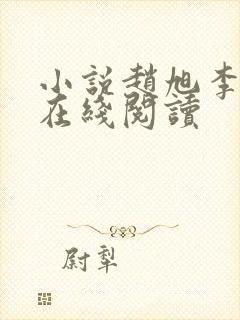 小説趙旭李
在綫閱讀
尉犁